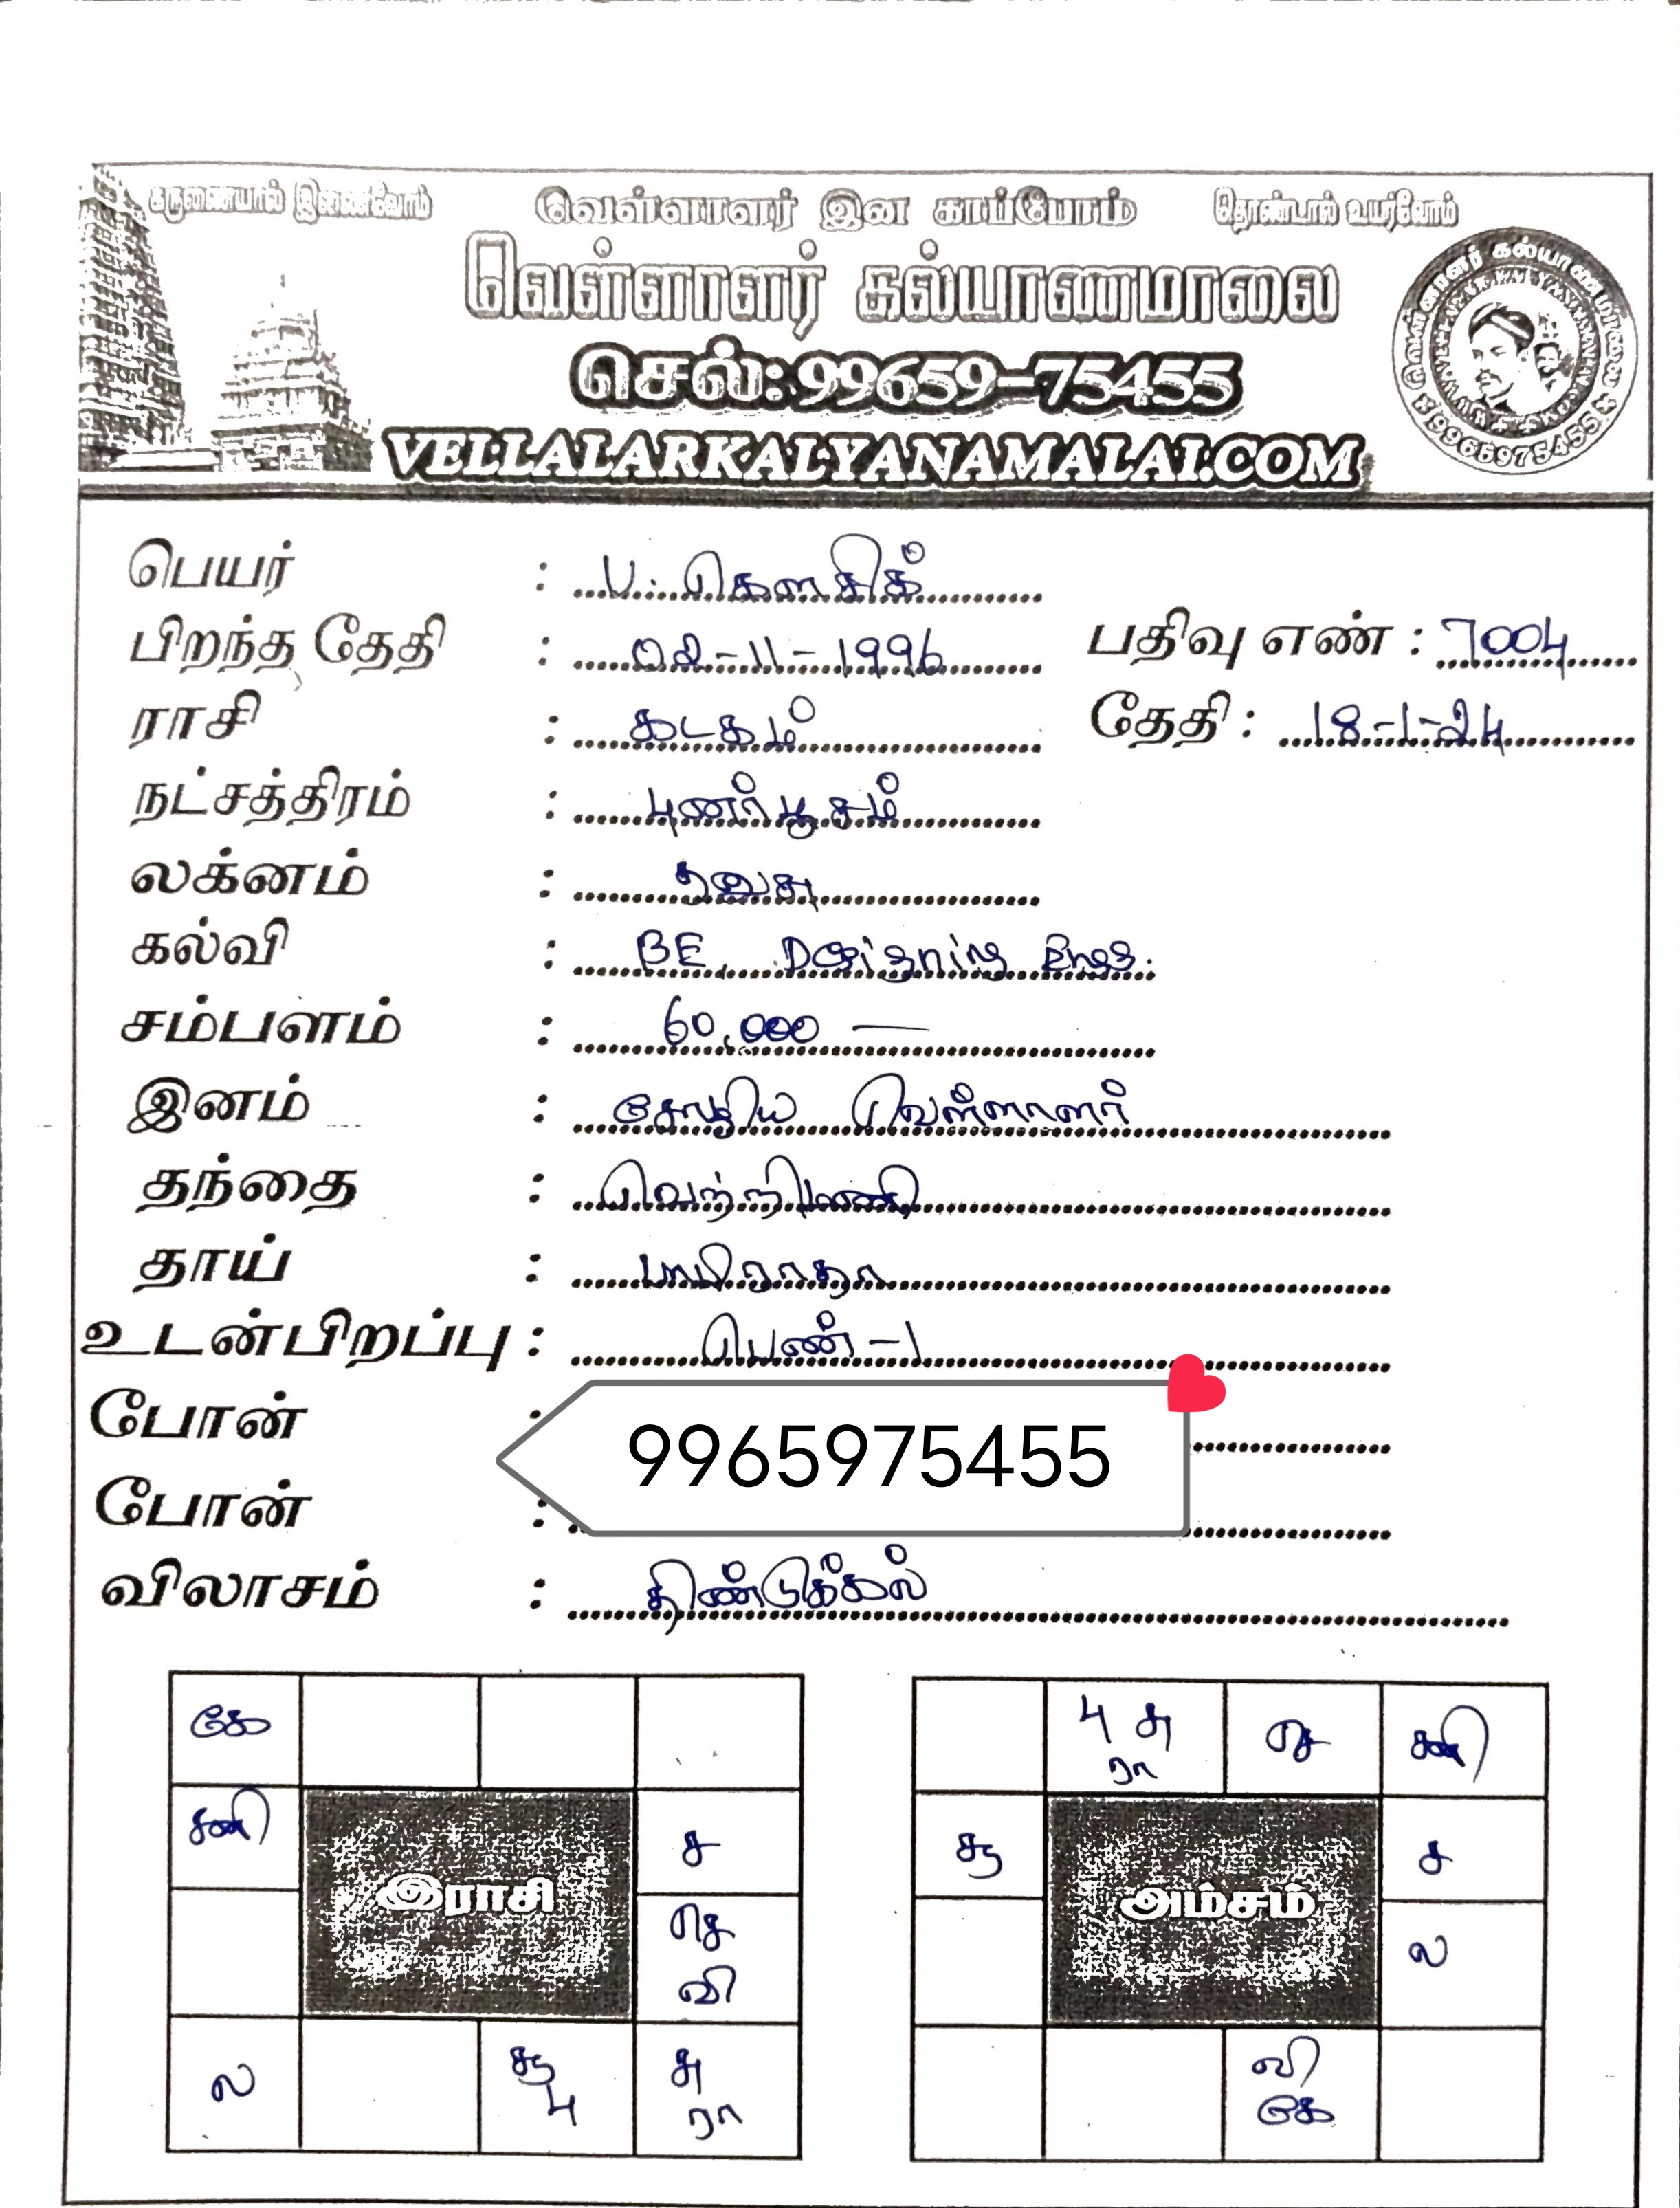 கருணையால் இணைவோம் வெள்ளாளர் இன காப்போம் தொண்டால் உயர்வோம்
வெள்ளாளர் கல்யாணமாலை
செல்: 99659-75455
VELLALARKALYANAMALAI.COM
வெள்ளாளர் கல்யாணமாலை
9965975455
பெயர் : U. கௌசிக்
பிறந்த தேதி : 02-11-1996 பதிவு எண் : 7004
ராசி : கடகம் தேதி : 18-1-24
நட்சத்திரம் : புனர்பூசம்
லக்னம் : தனுசு
கல்வி : BE, Designing Engg.
சம்பளம் : 60,000 —
இனம் : சோழிய வெள்ளாளர்
தந்தை : வெற்றிமணி
தாய் :
உடன்பிறப்பு : பெண் - 1
போன் : 9965975455
போன் :
விலாசம் : திண்டுக்கல்
கே
சனி ச
இராசி
செ
வி
ல சூ பு சு ரா
பு சு ரா செ சனி
சூ ச
அம்சம்
ல
வி
கே